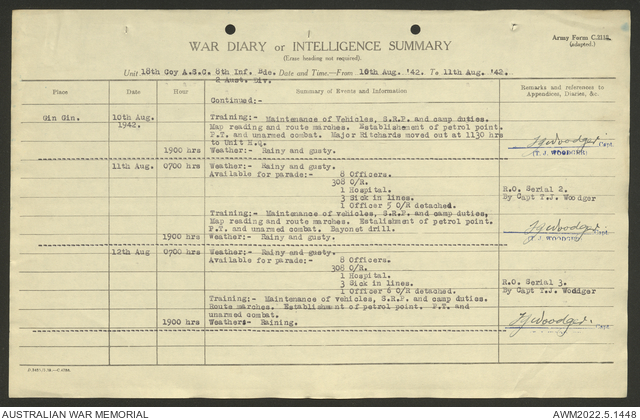 Army Form C.2118.
(adapted.)
WAR DIARY or INTELLIGENCE SUMMARY
(Erase heading not required).
Unit 18th Coy A.S.C. 5th Inf. Bde. Date and Time.—From 10th Aug. '42. To 11th Aug. '42.
2 Aust. Div.
Place Date Hour Summary of Events and Information Remarks and references to
Appendices, Diaries, &c.
Continued:-
Gin Gin. 10th Aug. Training:- Maintenance of Vehicles, S.R.P. and camp duties.
1942. Map reading and route marches. Establishment of petrol point.
P.T. and unarmed combat. Major Ritchards moved out at 1130 hrs
to Unit H.Q. TJWoodger Capt.
1900 hrs Weather:- Rainy and gusty. (T.J. WOODGER)
11th Aug. 0700 hrs Weather:- Rainy and gusty.
Available for parade:- 8 Officers.
308 O/R.
1 Hospital. R.O. Serial 2.
3 Sick in lines. By Capt T.J. Woodger
1 Officer 5 O/R detached.
Training:- Maintenance of vehicles, S.R.P. and camp duties,
Map reading and route marches. Establishment of petrol point.
P.T. and unarmed combat. Bayonet drill. TJWoodger Capt.
1900 hrs Weather:- Rainy and gusty. (T.J. WOODGER)
12th Aug 0700 hrs Weather:- Rainy and gusty.
Available for parade:- 8 Officers.
308 O/R.
1 Hospital.
3 Sick in lines. R.O. Serial 3.
1 Officer 6 O/R detached. By Capt T.J. Woodger
Training:- Maintenance of vehicles, S.R.P. and camp duties.
Route marches. Establishment of petrol point. P.T. and
unarmed combat.
1900 hrs Weather:- Raining. TJWoodger. Capt.
AUSTRALIAN WAR MEMORIAL AWM2022.5.1448